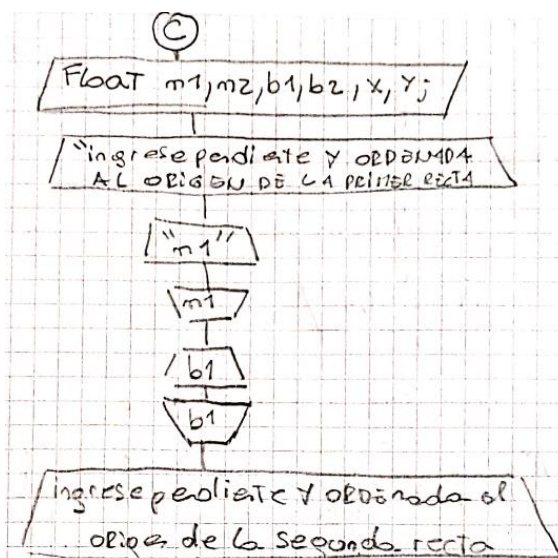 C
Float m1, m2, b1, b2, x, Y;
"ingrese pendiente Y ORDENADA
AL ORIGEN DE LA PRIMER RECTA
"m1"
m1
b1
b1
ingrese pendiente Y ORDENada al
origen de la segunda recta